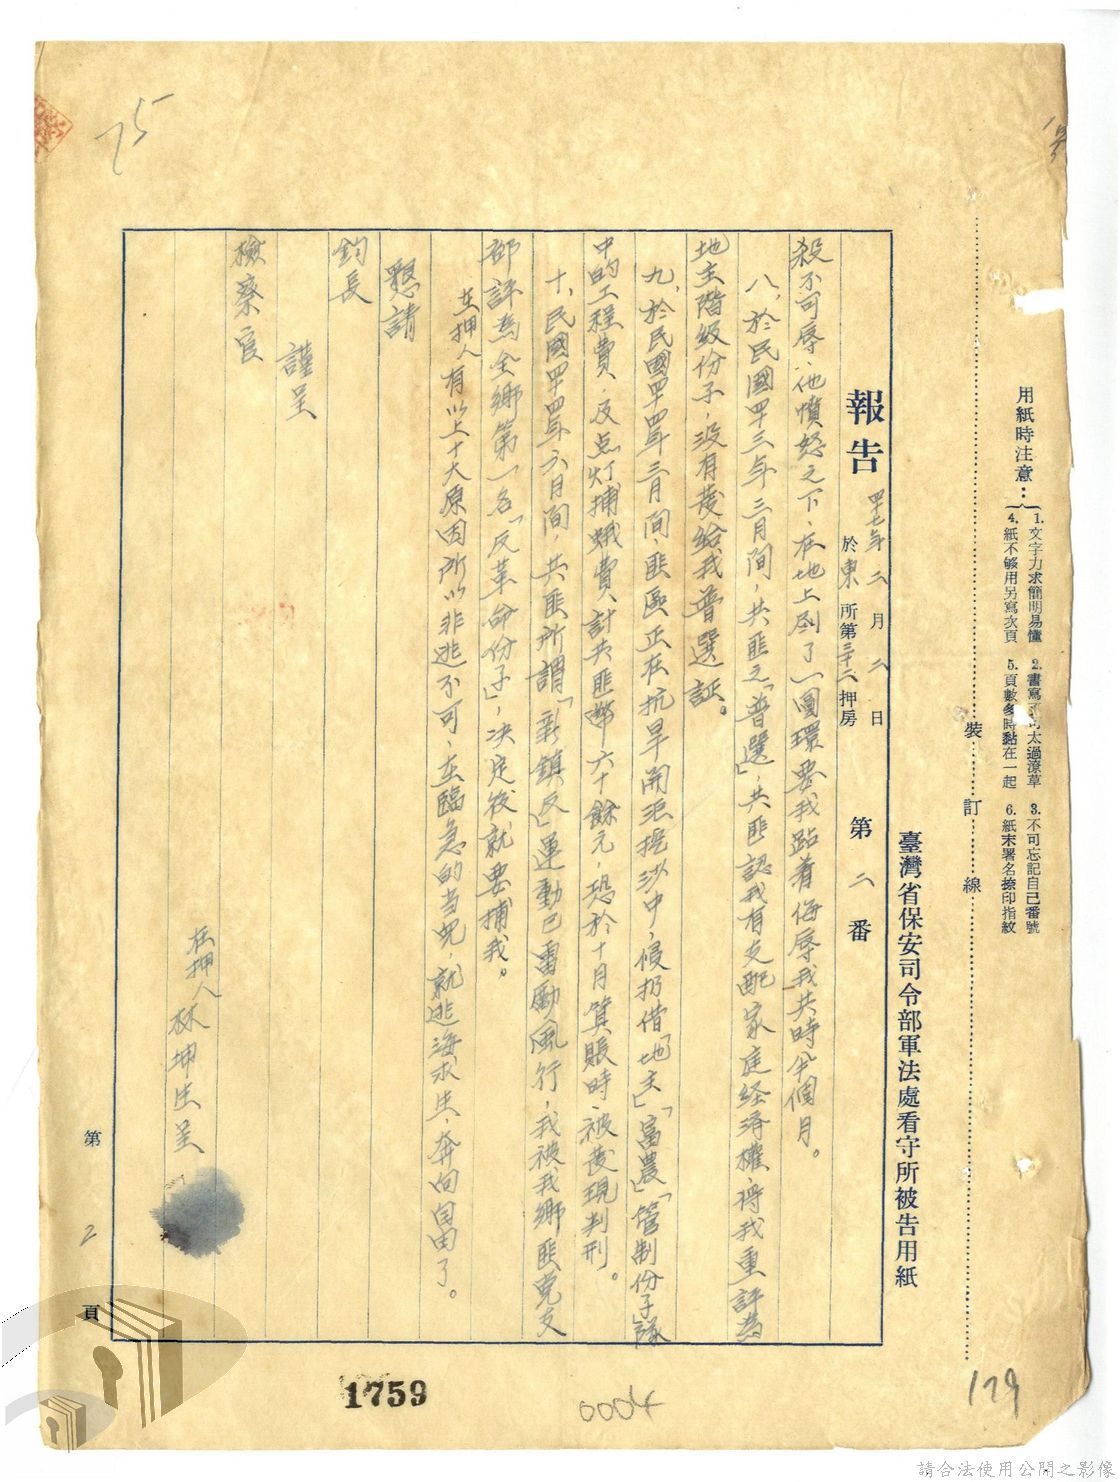 75
用紙時注意：
1.文字力求簡明易懂 2.書寫不可太過潦草 3.不可忘記自己番號
4.紙不够用另寫次頁 5.頁數多時黏在一起 6.紙末署名捺印指紋
裝 訂 線
臺灣省保安司令部軍法處看守所被告用紙
報告 四七年二月二日 於東所第三十二押房 第二番
殺不可辱、他憤怒之下、在地上刷了一圓環要我跕着侮辱我共時半個月。
八、於民國四十三年三月間，共匪之「普選」，共匪認我有支配家庭経濟權，将我重評為
地主階級份子，没有發給我普選証。
九、於民國四十四年三月間，匪區正在抗旱開泥挖沙中，假扔借「地主」「富農」「管制份子」隊
中的工程費，及点灯捕蛾費、計共匪幣六十餘元，恐於十月算賬時、被發現判刑。
十、民國四十四年六月間，共匪所謂「新鎮反」運動已雷勵風行，我被我鄉匪党支
部評為全鄉第一名「反革命份子」，决定後就要捕我。
在押人有以上十大原因所以非逃不可，在臨急的当児，就逃海求生，奔向自由了。
懇請
鈞長
謹呈
檢察官
在押人 林坤生呈
第 2 頁
1759
0004
129
請合法使用公開之影像